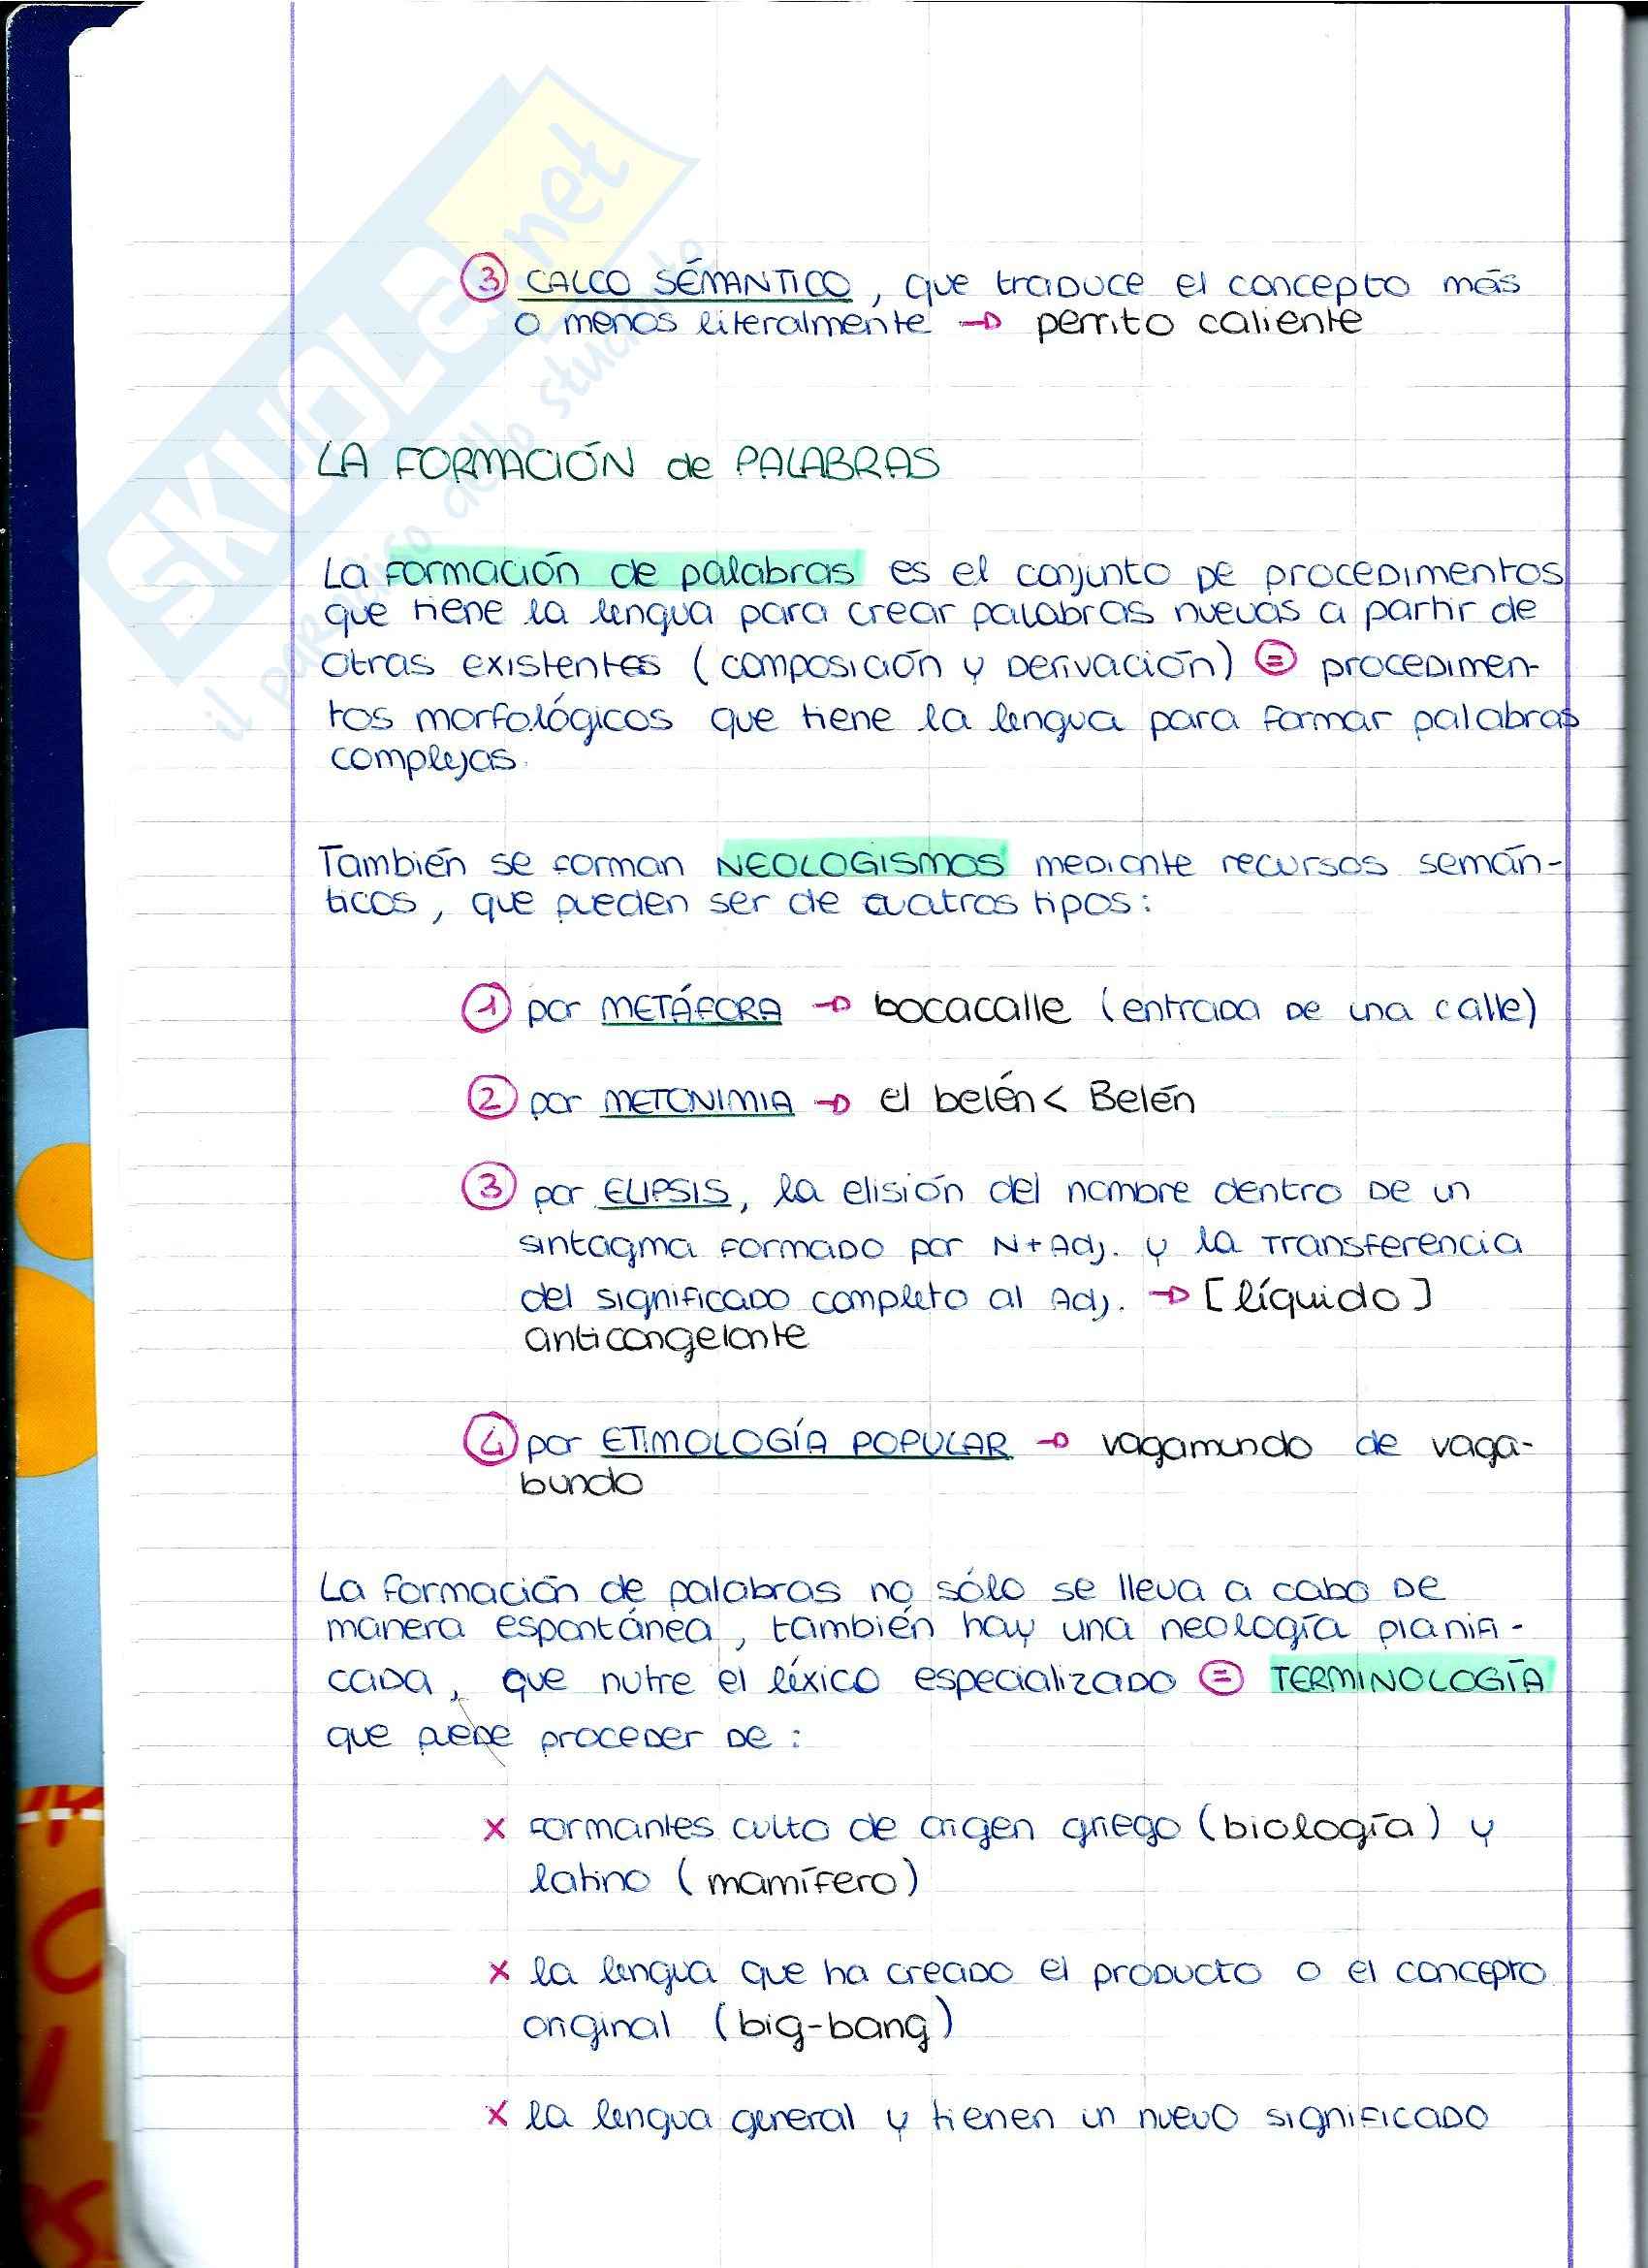 SKUOLA.net
il paradiso dello studente
③ CALCO SÉMANTICO, que traduce el concepto más
o menos literalmente → perrito caliente
LA FORMACIÓN de PALABRAS
La formación de palabras es el conjunto de procedimentos
que tiene la lengua para crear palabras nuevas a partir de
otras existentes (composición y derivación) = procedimen-
tos morfológicos que tiene la lengua para formar palabras
complejas.
También se forman NEOLOGISMOS mediante recursos semán-
ticos, que pueden ser de cuatros tipos:
① por METÁFORA → bocacalle (entrada de una calle)
② por METONIMIA → el belén < Belén
③ por ELIPSIS, la elisión del nombre dentro de un
sintagma formado por N+Adj. y la transferencia
del significado completo al Adj. → [líquido]
anticongelante
④ por ETIMOLOGÍA POPULAR → vagamundo de vaga-
bundo
La formación de palabras no sólo se lleva a cabo de
manera espontánea, también hay una neología planifi-
cada, que nutre el léxico especializado = TERMINOLOGÍA
que puede proceder de:
x formantes culto de origen griego (biología) y
latino (mamífero)
x la lengua que ha creado el producto o el concepto
original (big-bang)
x la lengua general y tienen un nuevo significado